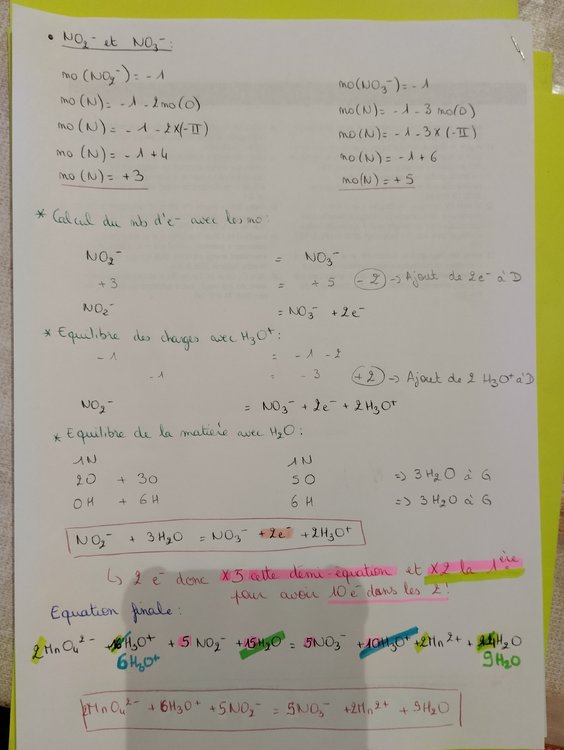 • NO₂⁻ et NO₃⁻ :
mo(NO₂⁻) = -1
mo(N) = -1 - 2mo(O)
mo(N) = -1 - 2×(-II)
mo(N) = -1+4
mo(N) = +3
mo(NO₃⁻) = -1
mo(N) = -1 - 3 mo(O)
mo(N) = -1 - 3×(-II)
mo(N) = -1+6
mo(N) = +5
* Calcul du nb d'e⁻ avec les mo :
NO₂⁻ = NO₃⁻
+3 = +5 (-2) → Ajout de 2e⁻ à D
NO₂⁻ = NO₃⁻ + 2e⁻
* Equilibre des charges avec H₃O⁺ :
-1 = -1 - 2
-1 = -3 (+2) → Ajout de 2 H₃O⁺ à D
NO₂⁻ = NO₃⁻ + 2e⁻ + 2H₃O⁺
* Equilibre de la matière avec H₂O :
1N 1N
2O + 3O 5O ⇒ 3H₂O à G
0H + 6H 6H ⇒ 3H₂O à G
NO₂⁻ + 3H₂O = NO₃⁻ + 2e⁻ + 2H₃O⁺
↳ 2 e⁻ donc ×5 cette demi-équation et ×2 la 1ère
pour avoir 10e⁻ dans les 2 !
Equation finale :
2MnO₄²⁻ + 16H₃O⁺ + 5 NO₂⁻ + 15H₂O = 5NO₃⁻ + 10H₃O⁺ + 2Mn²⁺ + 24H₂O
6H₃O⁺ 9H₂O
2MnO₄²⁻ + 6H₃O⁺ + 5NO₂⁻ = 5NO₃⁻ + 2Mn²⁺ + 9H₂O